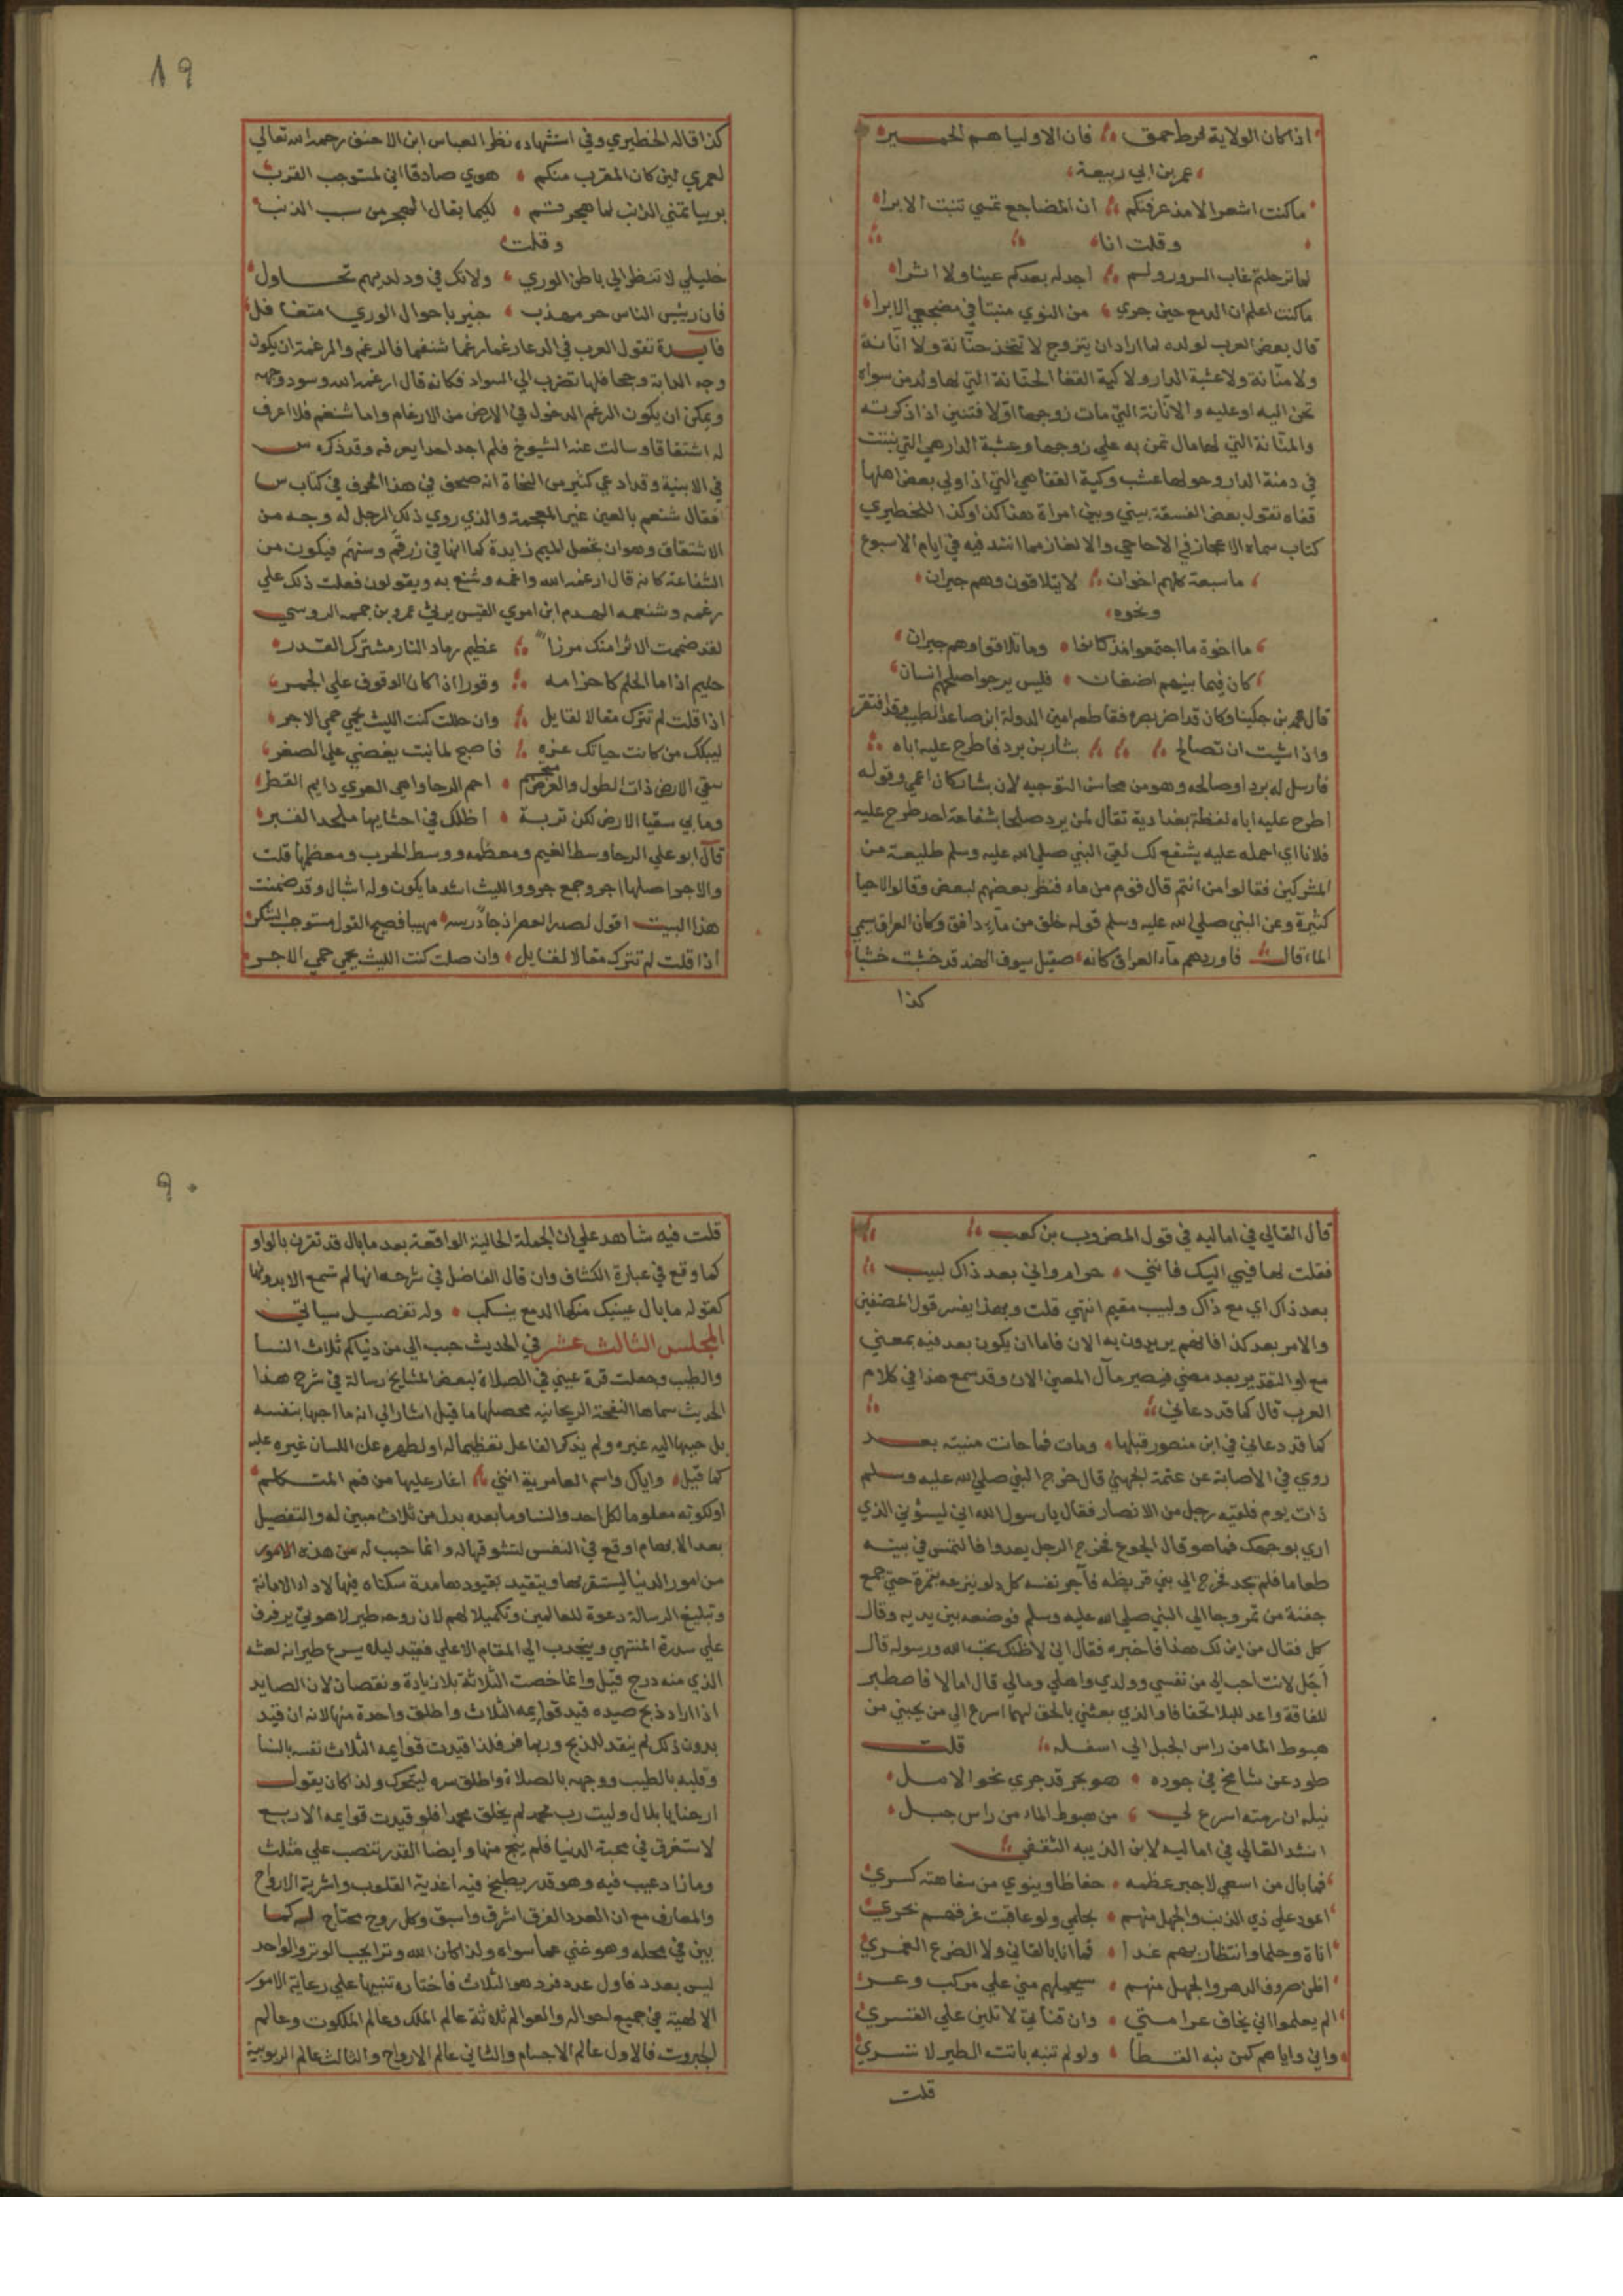 اذا كان الولاية لحرط حمق فان الاوليا هم الحمير
عمر بن ابي ربيعة
ما كنت اشعر الا مذ عرفتكم ان المضاجع تمسي تنبت الابرا
وقلت انا
لما ترحلتم غاب السرور ولم اجد له بعدكم عينا ولا اثرا
ما كنت اعلم ان الدمع حين جري من النوي منبتا في مضجعي الابرا
قال بعض العرب لولده لما اراد ان يتزوج لا تتخذ حنانة ولا انانة
ولا منانة ولا عشبة الدار ولا كية القفا الحنانة التي لها ولد من سواه
تحن اليه او عليه والانانة التي مات زوجها اولا فتئن اذا ذكرته
والمنانة التي لها مال تمن به علي زوجها وعشبة الدار هي التي تنبت
في دمنة الدار وحولها عشب وكية القفا هي التي اذا ولي بعض اهلها
قفاه تقول بعض الفسقة بيني وبين امراة هذا كذا وكذا للخطيري
كتاب سماه الاعجاز في الاحاجي والالغاز مما انشد فيه في ايام الاسبوع
ما سبعة كلهم اخوان لا يتلاقون وهم جيران
ونحوه
ما اخوة ما اجتمعوا مذ كانوا وما تلاقوا وهم جيران
كان فيما بينهم اضغان فليس يرجوا صلحهم انسان
قال محمد بن جكينا وكان قد اضر بصره فقاطعه امين الدولة ابن صاعد الطبيب وقد افتقر
واذا شيت ان تصالح بشار بن برد فاطرح عليه اباه
فارسل له بردا وصالحه وهو من محاسن التوجيه لان بشار كان اعمي وقوله
اطرح عليه اباه لفظة بغدادية تقال لمن يريد صلحا بشفاعة احد طرح عليه
فلانا اي احمله عليه يشفع لك لقي النبي صلي الله عليه وسلم طليعة من
المشركين فقالوا من انتم قال قوم من ماء فنظر بعضهم لبعض وقالوا احيا
كثيرة وعن النبي صلي الله عليه وسلم قوله خلق من ماء دافق وكان العراق يسمي
الماء قال فاوردهم ماء العراق كانه صقيل سيوف الهند قد خشبت خشبا
كذا
19
كذا قاله الخطيري وفي استشهاده نظر العباس ابن الاحنف رحمه الله تعالي
لعمري لين كان المقرب منكم هوي صادقا اني لمستوجب القرب
بريبا تمني الذنب لما هجرتم لكيما يقال الهجر من سبب الذنب
وقلت
خليلي لا تنظر الي باطن الوري ولا تك في ود لديهم تحاول
فان رئيس الناس حر مهذب خبير باحوال الوري متغافل
فايدة تقول العرب في الدعا رغما دغما شنغما فالدغم والمرغمة ان يكون
وجه الدابة وجحافلها تضرب الي السواد فكانه قال ارغمه الله وسود وجهه
ويمكن ان يكون الدغم الدخول في الارض من الارغام واما شنغم فلا اعرف
له اشتقاقا وسالت عنه الشيوخ فلم اجد احدا يعرفه وقد ذكره س
في الابنية وقد ادعي كثير من النحاة انه صحف في هذا الحرف في كتاب س
فقال شنعم بالعين غير المعجمة والذي روي ذلك الرجل له وجه من
الاشتقاق وهو ان تجعل الميم زايدة كما انها في زرقم وستهم فيكون من
الشناعة كانه قال ارغمه الله وادغمه وشنع به ويقولون فعلت ذلك علي
رغمه وشنعمه الهدم ابن امري القيس يرثي عمرو بن حممة الدوسي
لقد ضمت الاثرا منك مرزا عظيم رماد النار مشترك القدر
حليم اذا ما الحلم كان حزامه وقورا اذا كان الوقوف علي الجمر
اذا قلت لم تترك مقالا لقايل وان حللت كنت الليث يحمي حمي الاجر
ليبكك من كانت حياتك عزه فاصبح لما نبت يغضي علي الصغر
سقي الارض ذات الطول والعرض احم الرحا واهي العري دايم القطر
وما بي سقيا الارض لكن تربة اظلك في احشايها ملحد القبر
قال ابو علي الرحا وسط الغيم ومعظمه ووسط الحرب ومعظمها قلت
والاجر اصلها اجر وجمع جرو والليث اشد ما يكون وله اشبال وقد ضمنت
هذا البيت اقول لصدر العصر اذ جا درسه مهيبا فصيح القول مستوجب الشكر
اذا قلت لم تترك مقالا لقايل وان صلت كنت الليث يحمي حمي الاجر
قال القالي في اماليه في قول المضروب بن كعب
فقلت لها فيي اليك فانني حرام واني بعد ذاك لبيب
بعد ذاك اي مع ذاك ولبيب مقيم انتهي قلت وبهذا يفسر قول المصنفين
والامر بعد كذا فانهم يريدون به الان فاما ان يكون بعد فيه بمعني
مع او التقدير بعد مضي فيصير مآل المعني الان وقد سمع هذا في كلام
العرب قال كما قد دعاني
كما قد دعاني في ابن منصور قبلها ومات فما حانت منيته بعد
روي في الاصابة عن عتمة الجهني قال خرج النبي صلي الله عليه وسلم
ذات يوم فلقيه رجل من الانصار فقال يا رسول الله اني ليسوني الذي
اري بوجهك فما هو قال الجوع فخرج الرجل يعدوا فالتمس في بيته
طعاما فلم يجد فخرج الي بني قريظة فآجر نفسه كل دلو ينزعه بتمرة حتي جمع
حفنة من تمر وجا الي النبي صلي الله عليه وسلم فوضعه بين يديه وقال
كل فقال من اين لك هذا فاخبره فقال اني لاظنك تحب الله ورسوله قال
اجل لانت احب الي من نفسي وولدي واهلي ومالي قال اما لا فاصطبر
للفاقة واعد للبلا تجفافا والذي بعثني بالحق لهما اسرع الي من يحبني من
هبوط الما من راس الجبل الي اسفله قلت
طود عن شامخ في جوده هو بحر قد جري نحو الامل
نيله ان رمته اسرع لي من هبوط الماء من راس جبل
انشد القالي في اماليه لابن الذيبه الثقفي
فما بال من اسعي لاجبر عظمه حفاظا وينوي من سفاهته كسري
اعود علي ذي الذنب والجهل منهم بحلمي ولو عاقبت غرقهم بحري
اناة وحلما وانتظارا بهم غدا فما انا بالفاني ولا الضرع الغمري
اظن صروف الدهر والجهل منهم سيحملهم مني علي مركب وعر
الم يعلموا اني يخاف عرامتي وان قناتي لا تلين علي القسري
واني واياهم كمن نبه القطا ولو لم تنبه باتت الطير لا تسري
قلت
9٠
قلت فيه شاهد علي ان الجملة الحالية الواقعة بعد ما بال قد تقترن بالواو
كما وقع في عبارة الكشاف وان قال الفاضل في شرحه انها لم تسمع الا بدونها
كقوله ما بال عينيك منها الدمع ينسكب وله تفصيل سياتي
المجلس الثالث عشر في الحديث حبب الي من دنياكم ثلاث النسا
والطيب وجعلت قرة عيني في الصلاة لبعض المشايخ رسالة في شرح هذا
الحديث سماها النفحة الريحانيه محصلها ما قيل اشار الي انه ما احبها بنفسه
بل حببها اليه غيره ولم يذكر الفاعل تعظيما له او لطهره عن اللسان غيره عليه
كما قيل واياك واسم العامرية انني اغار عليها من فم المتكلم
او لكونه معلوما لكل احد والنسا وما بعده بدل من ثلاث مبين له والتفصيل
بعد الابهام اوقع في النفس لتشوقها له وانما حبب له من هذه الامور
من امور الدنيا ليستقر بها ويتقيد بقيودها مدة سكناه فيها لاداء الامانة
وتبليغ الرسالة دعوة للعالمين وتكميلا لهم لان روحه طير لاهوتي يرفرف
علي سدرة المنتهي وينجذب الي المقام الاعلي فقيد ليلا يسرع طيرانه لعشه
الذي منه درج قيل وانما خصت الثلاثة بلا زيادة ونقصان لان الصايد
اذا اراد ذبح صيده قيد قوايمه الثلاث واطلق واحدة منها لانه ان قيد
بدون ذلك لم ينقد للذبح وربما فر فلذا قيدت قوايمه الثلاث نفسه بالنسا
وقلبه بالطيب ووجهه بالصلاة واطلق سره ليتحرك ولذا كان يقول
ارحنا يا بلال وليت رب محمد لم يخلق محمدا فلو قيدت قوايمه الاربع
لاستغرق في محبة الدنيا فلم ينج منها وايضا القدر تنصب علي مثلث
وماذا دعيب فيه وهو قدر يطبخ فيه اغذية القلوب واشربة الارواح
والمعارف مع ان العدد الفرق اشرف واسبق وكل زوج محتاج له كما
بين في محله وهو غني عما سواه ولذا كان الله وترا يحب الوتر والواحد
ليس بعدد فاول عدد فرد هو الثلاث فاختاره تنبيها علي رعاية الامور
الالهية في جميع احواله والعوالم ثلاثة عالم الملك وعالم الملكوت وعالم
الجبروت فالاول عالم الاجسام والثاني عالم الارواح والثالث عالم الربوبية